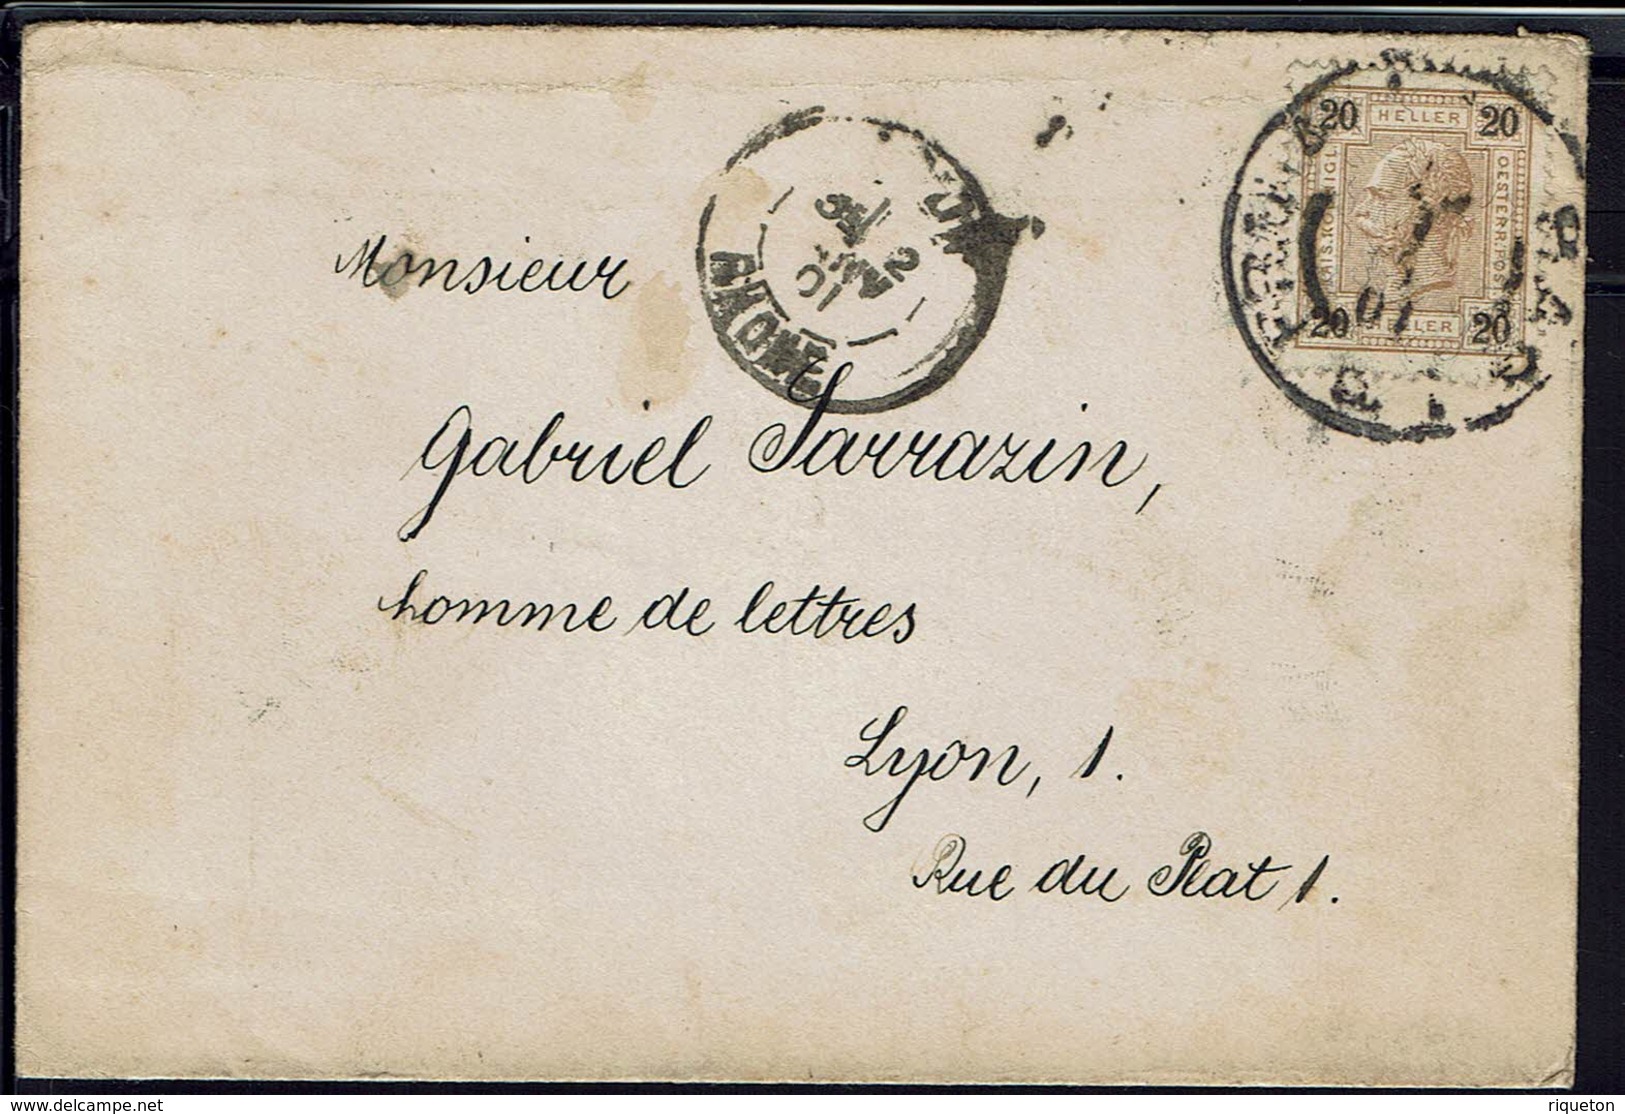 20 HELLER 20
KAIS. KÖNIGL. OESTERR. POST
20 HELLER 20
RHONE
Monsieur
Gabriel Sarrazin,
homme de lettres
Lyon, 1.
Rue du Plat 1.
www.delcampe.net
riqueton